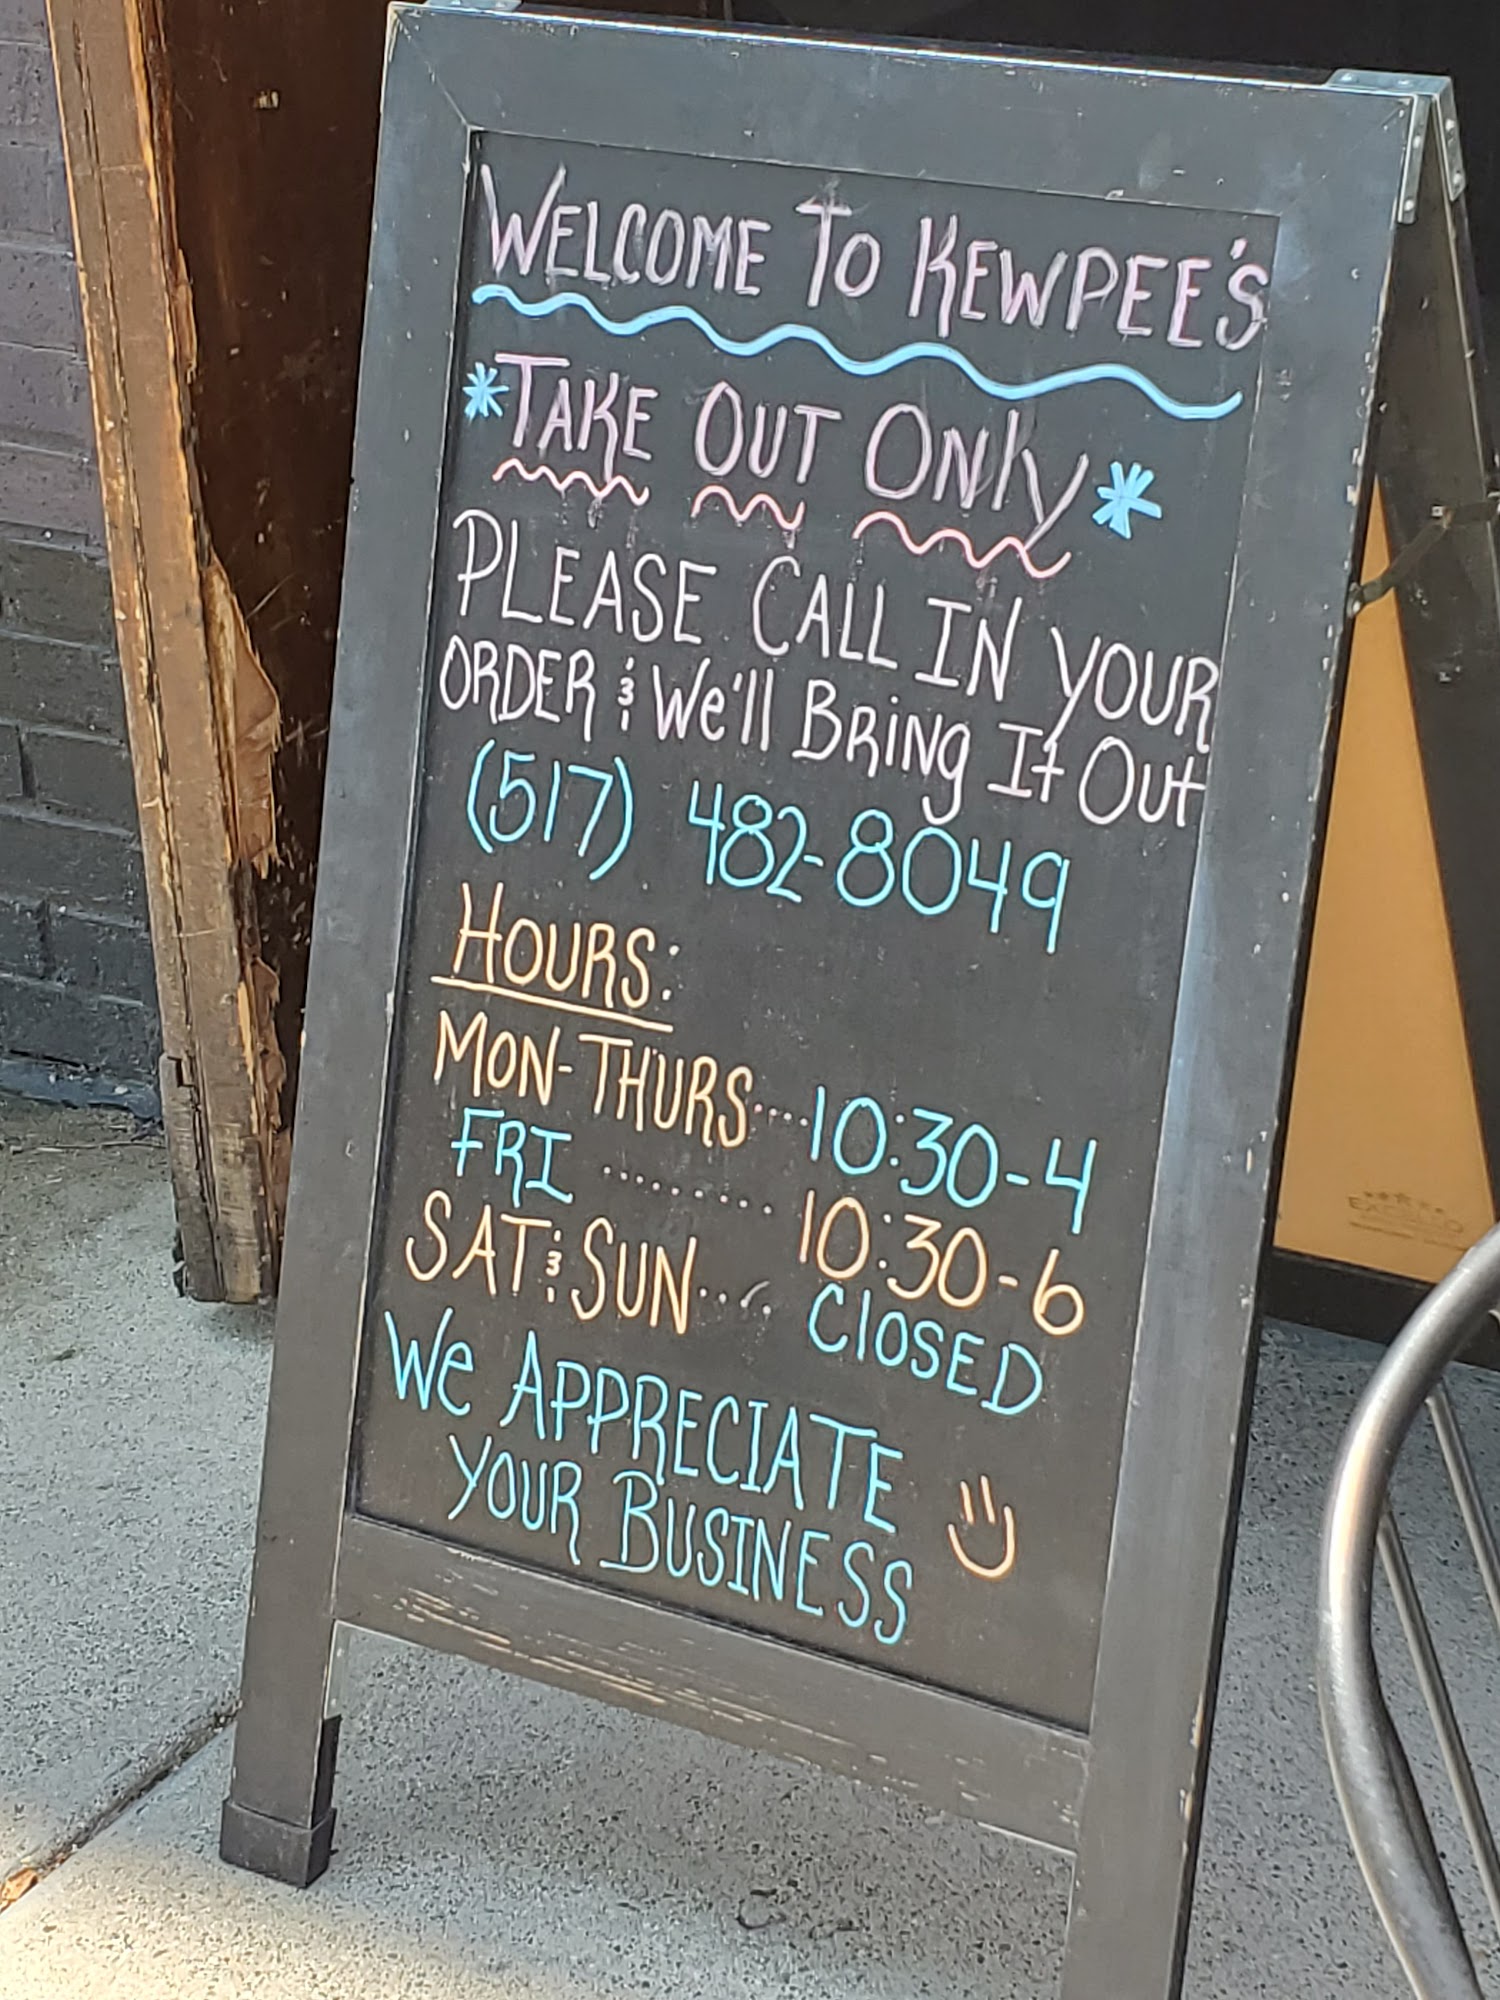 WELCOME TO KEWPEE'S
*TAKE OUT ONLY*
PLEASE CALL IN YOUR
ORDER & We'll BRiNg It Out
(517) 482-8049
HOURS:
MON-THURS....10:30-4
FRI .......... 10:30-6
SAT & SUN.... ClOSED
We APPRECIATE
YOUR BUSINESS
EXCELLO